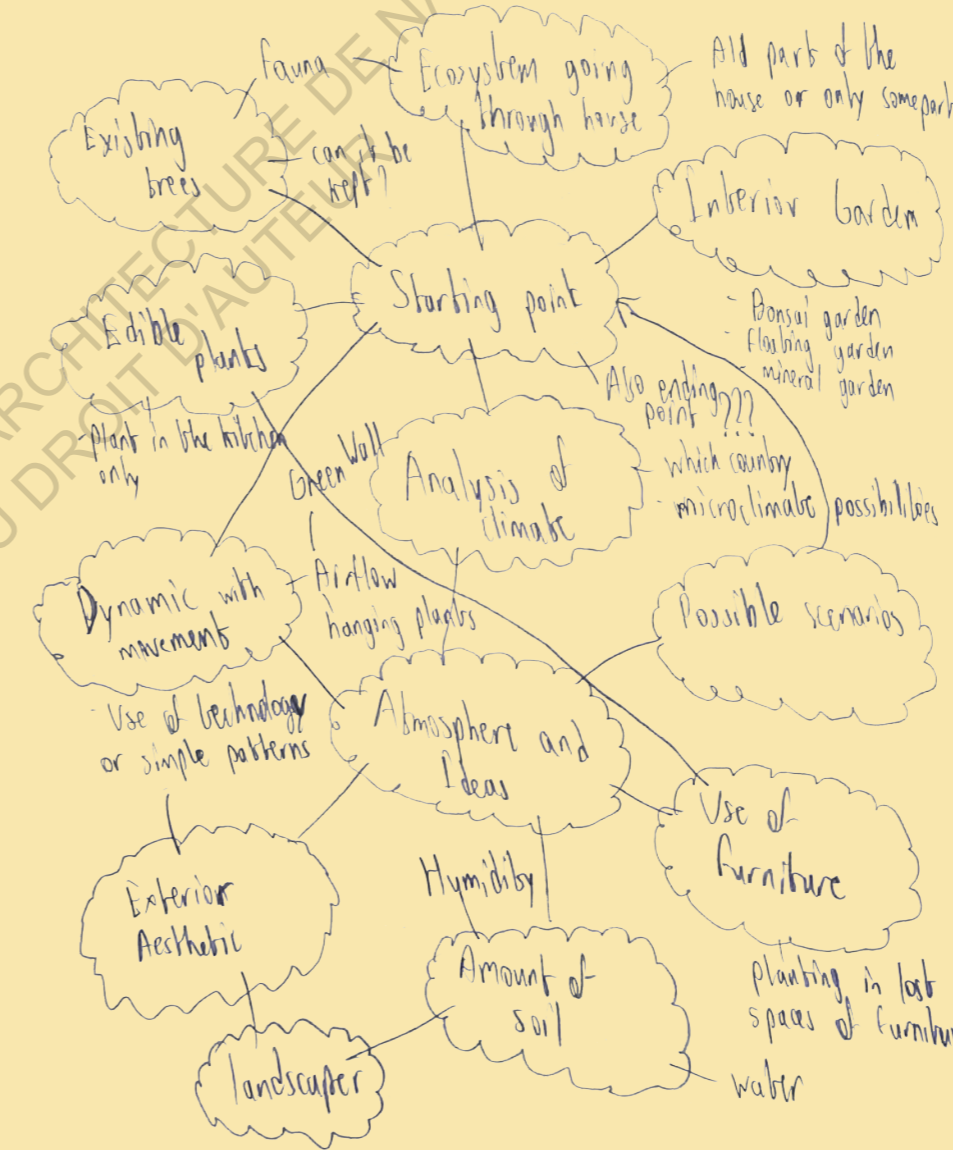 ARCHITECTURE DE NA
U DROIT D'AUTEUR
Fauna
Ecosystem going
through house
part of the
house or only some part
Existing
trees
can it be
kept?
Interior Garden
- Bonsai garden
- Floating garden
- mineral garden
Starting point
Edible
plants
- plant in the kitchen
only
Also ending
point ???
Green Wall
Analysis of
climate
- which country
- microclimate possibilities
Dynamic with
movement
- Airflow
hanging plants
Possible scenarios
- Use of technology
or simple patterns
Atmosphere and
Ideas
Use of
furniture
Humidity
Exterior
Aesthetic
Amount of
soil
planting in lost
spaces of furnitur
landscaper
water